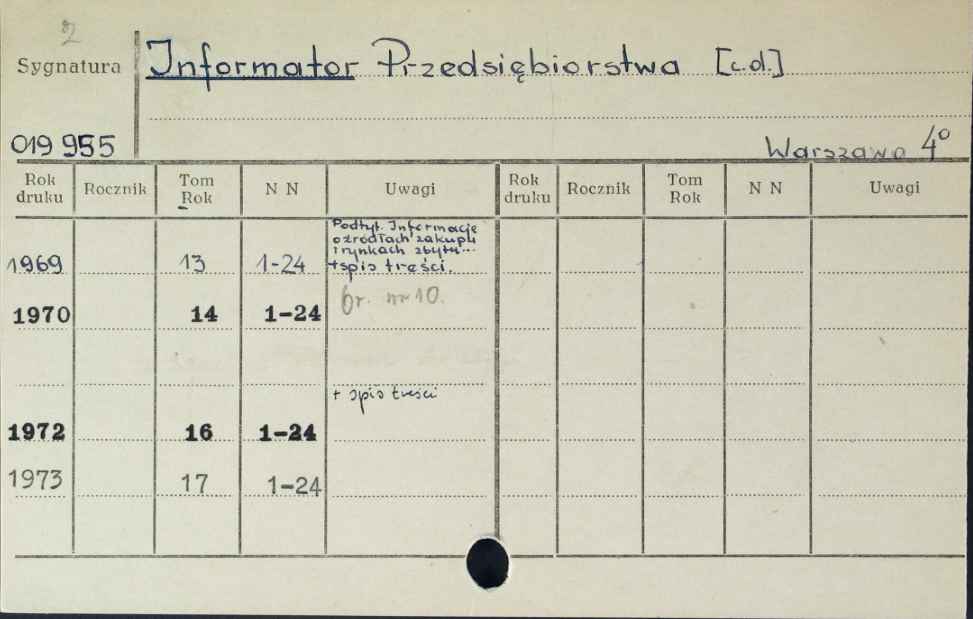 2
Sygnatura
Informator Przedsiębiorstwa [c.d.]
019 955
Warszawa 4°
Rok druku Rocznik Tom Rok N N Uwagi Rok druku Rocznik Tom Rok N N Uwagi
Podtyt. Informacje
o źródłach zakupu
i rynkach zbytu...
1969 13 1-24 +spis treści.
1970 14 1-24 br. nr 10.
+ spis treści
1972 16 1-24
1973 17 1-24